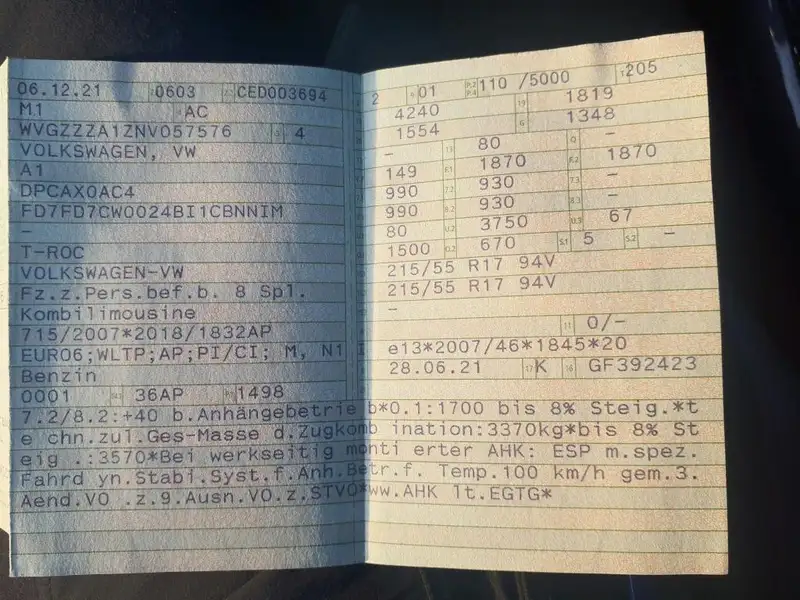 06.12.21 0603 CED003694
M1 AC
WVGZZZA1ZNV057576 4
VOLKSWAGEN, VW
A1
DPCAX0AC4
FD7FD7CW0024BI1CBNNIM
–
T-ROC
VOLKSWAGEN-VW
Fz.z.Pers.bef.b. 8 Spl.
Kombilimousine
715/2007*2018/1832AP
EURO6;WLTP;AP;PI/CI; M, N1 I
Benzin
0001 36AP 1498
2 01 P.2 P.4 110 /5000 T 205
4240 19 1819
1554 G 1348
– 13 80 Q –
149 F.1 1870 F.2 1870
990 7.2 930 7.3 –
990 8.2 930 8.3 –
80 U.2 3750 U.3 67
1500 O.2 670 S.1 5 S.2 –
215/55 R17 94V
215/55 R17 94V
–
11 0/–
e13*2007/46*1845*20
28.06.21 17 K 16 GF392423
7.2/8.2:+40 b.Anhängebetrie b*0.1:1700 bis 8% Steig.*t
e chn.zul.Ges-Masse d.Zugkomb ination:3370kg*bis 8% St
eig .:3570*Bei werkseitig monti erter AHK: ESP m.spez.
Fahrd yn.Stabi.Syst.f.Anh.Betr.f. Temp.100 km/h gem.3.
Aend.VO .z.9.Ausn.VO.z.STVO*ww.AHK lt.EGTG*